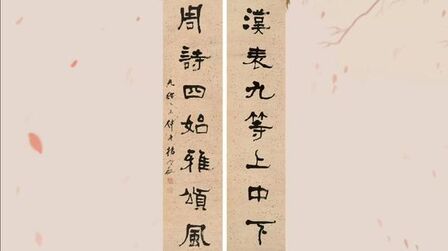 漢表九等上中下
周詩四始雅頌風